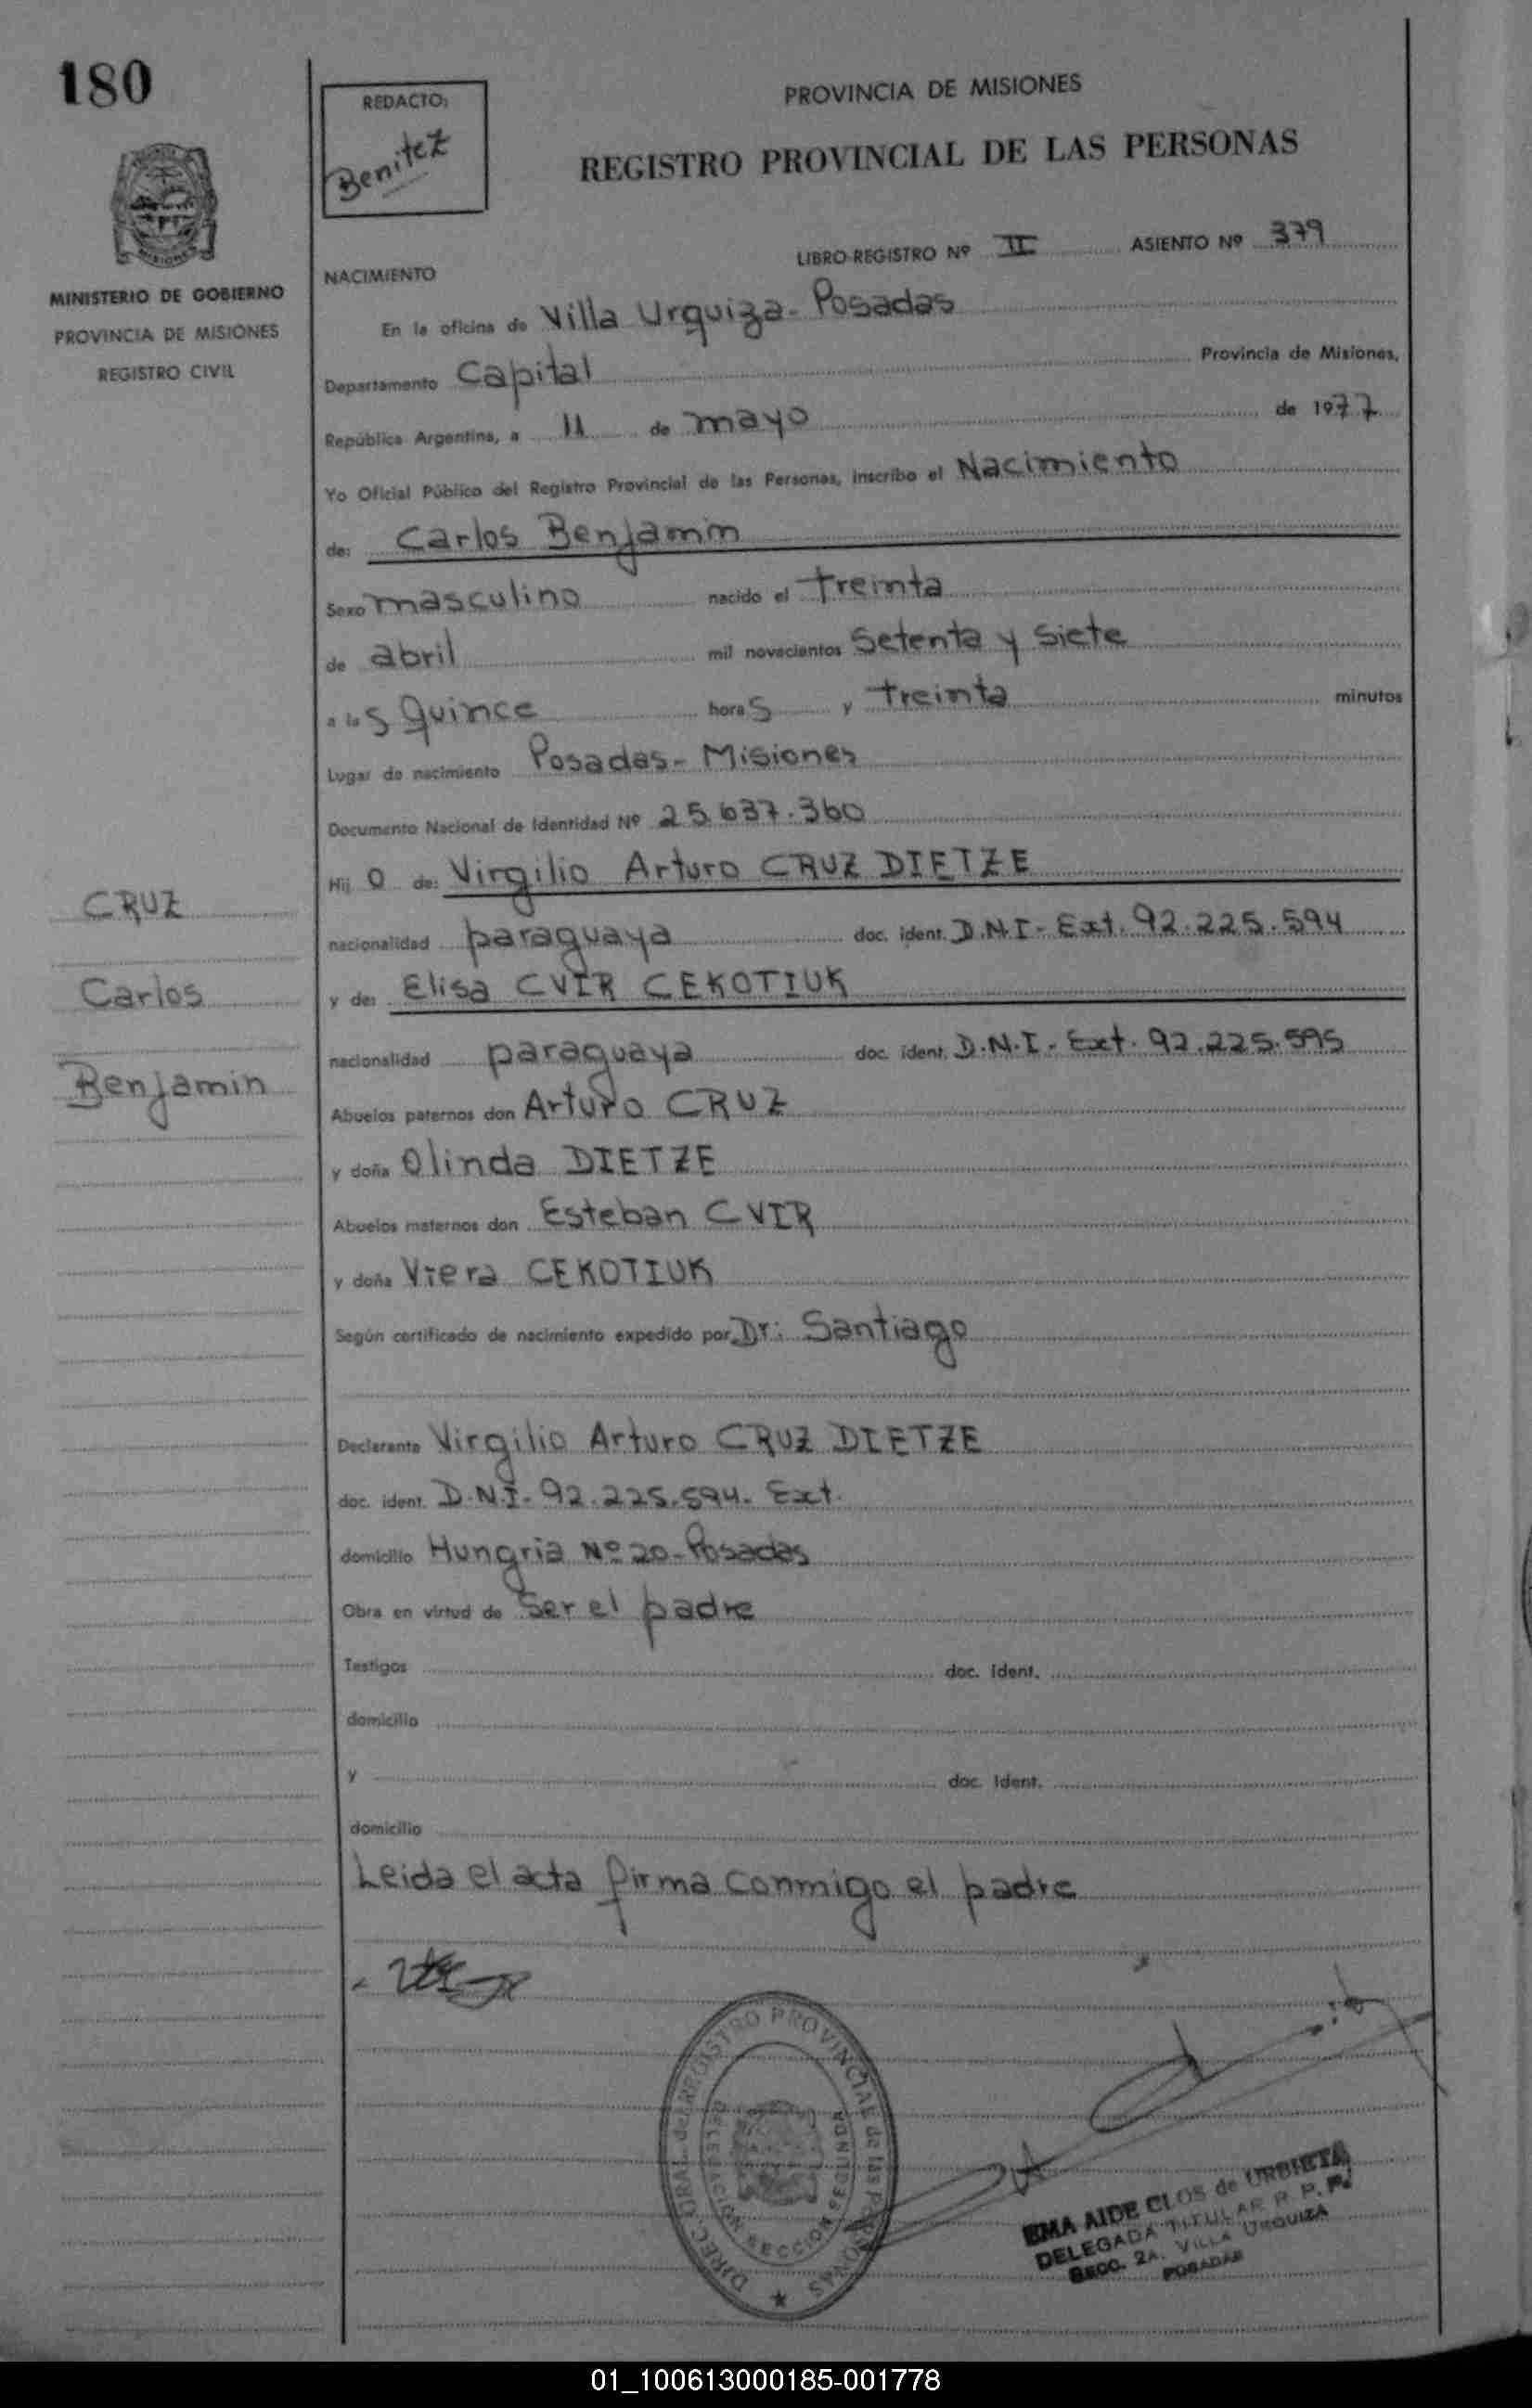 180
REDACTO:
Benitez
PROVINCIA DE MISIONES
REGISTRO PROVINCIAL DE LAS PERSONAS
LIBRO-REGISTRO Nº II ASIENTO Nº 379
MISIONES
MINISTERIO DE GOBIERNO
PROVINCIA DE MISIONES
REGISTRO CIVIL
NACIMIENTO
En la oficina de Villa Urquiza - Posadas
Departamento Capital Provincia de Misiones,
República Argentina, a 11 de mayo de 1977
Yo Oficial Público del Registro Provincial de las Personas, inscribo el Nacimiento
de: Carlos Benjamin
Sexo masculino nacido el treinta
de abril mil novecientos Setenta y Siete
a las quince horas y treinta minutos
Lugar de nacimiento Posadas - Misiones
Documento Nacional de Identidad Nº 25.637.360
Hijo de: Virgilio Arturo CRUZ DIETZE
nacionalidad paraguaya doc. ident. D.N.I - Ext. 92.225.594
y de: Elisa CVIR CEKOTIUK
nacionalidad paraguaya doc. ident. D.N.I - Ext. 92.225.595
CRUZ
Carlos
Benjamin
Abuelos paternos don Arturo CRUZ
y doña Olinda DIETZE
Abuelos maternos don Esteban CVIR
y doña Viera CEKOTIUK
Según certificado de nacimiento expedido por Dr: Santiago
Declarante Virgilio Arturo CRUZ DIETZE
doc. ident. D.N.I - 92.225.594. Ext.
domicilio Hungria Nº 20 - Posadas
Obra en virtud de Ser el padre
Testigos doc. ident.
domicilio
y doc. ident.
domicilio
Leida el acta firma conmigo el padre
DIREC. GRAL. del REGISTRO PROVINCIAL de las PERSONAS
DELEGACION SECCION SEGUNDA
EMA AIDE CLOS de URBIETA
DELEGADA TITULAR R. P. P.
SECC. 2A. VILLA URQUIZA
POSADAS
01_100613000185-001778